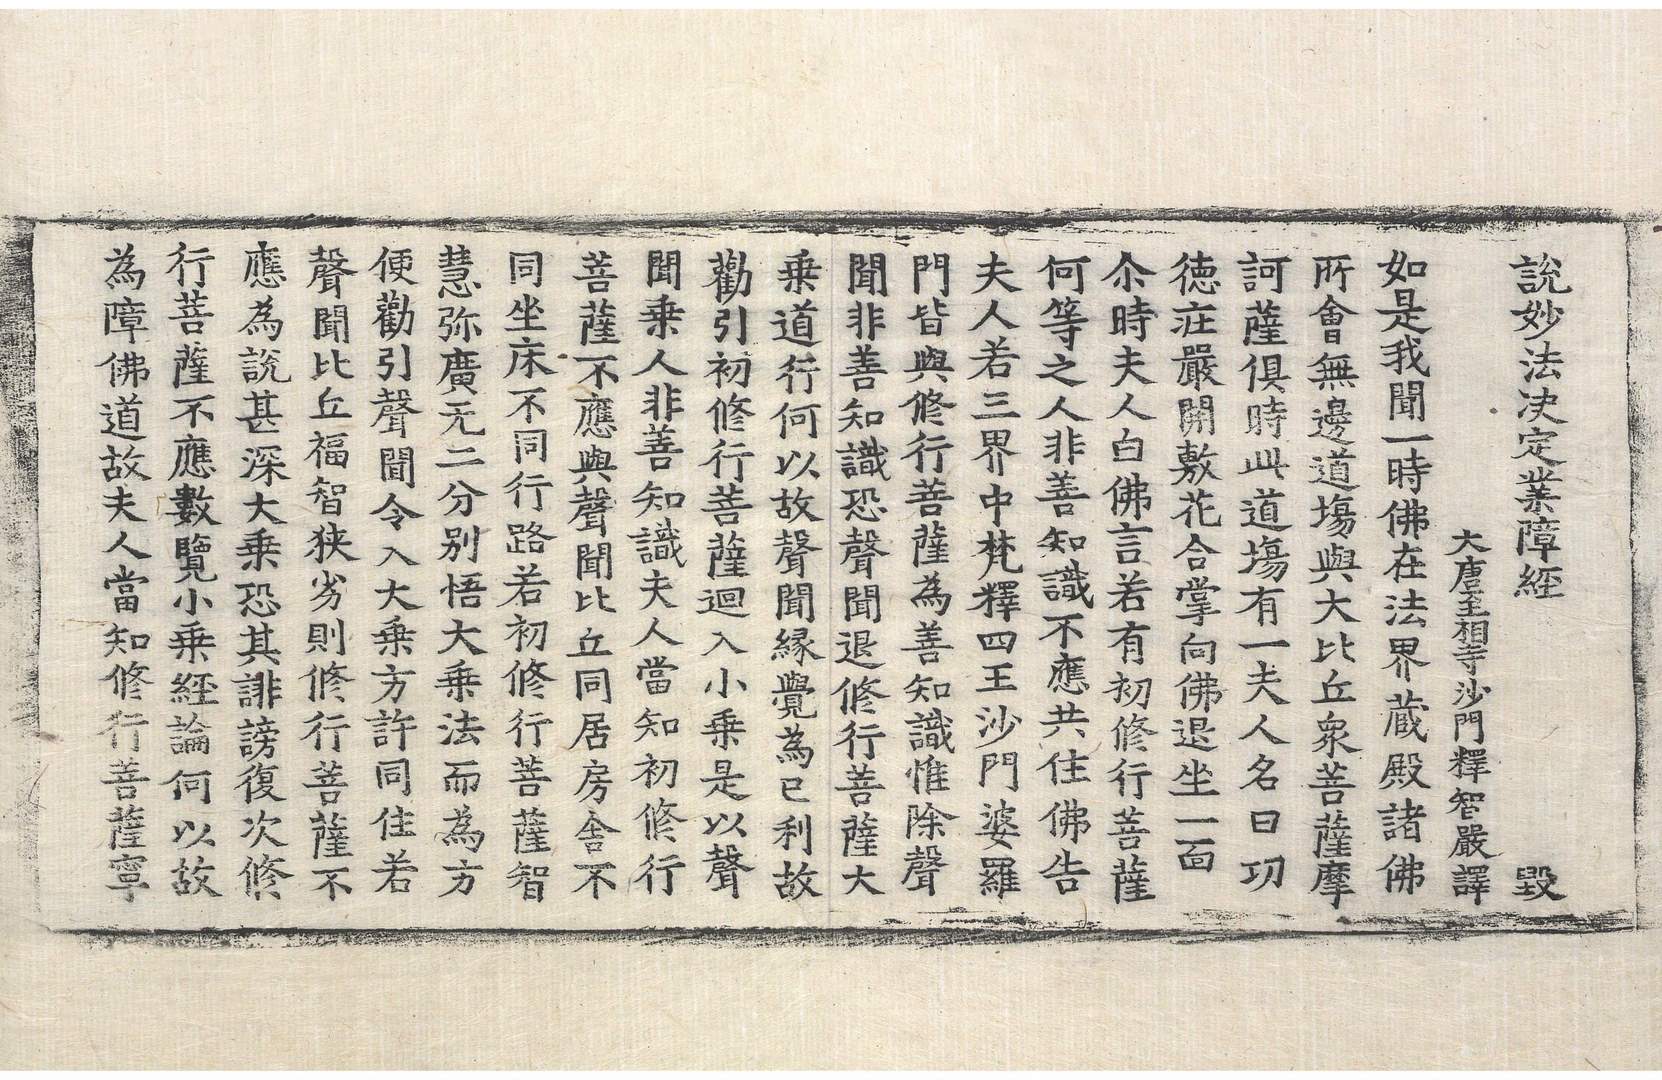 說妙法决定業障經 毀
大唐至相寺沙門釋智嚴譯
如是我聞一時佛在法界蔵殿諸佛
所會無邊道場與大比丘衆菩薩摩
訶薩俱時此道場有一夫人名曰功
德莊嚴開敷花合掌向佛退坐一面
尒時夫人白佛言若有初修行菩薩
何等之人非善知識不應共住佛告
夫人若三界中梵釋四王沙門婆羅
門皆與修行菩薩為善知識惟除聲
聞非善知識恐聲聞退修行菩薩大
乗道行何以故聲聞緣覺為己利故
勸引初修行菩薩迴入小乗是以聲
聞乗人非善知識夫人當知初修行
菩薩不應與聲聞比丘同居房舍不
同坐床不同行路若初修行菩薩智
慧弥廣无二分別悟大乗法而為方
便勸引聲聞令入大乗方許同住若
聲聞比丘福智狹劣則修行菩薩不
應為說甚深大乗恐其誹謗復次修
行菩薩不應數覽小乗經論何以故
為障佛道故夫人當知修行菩薩寧